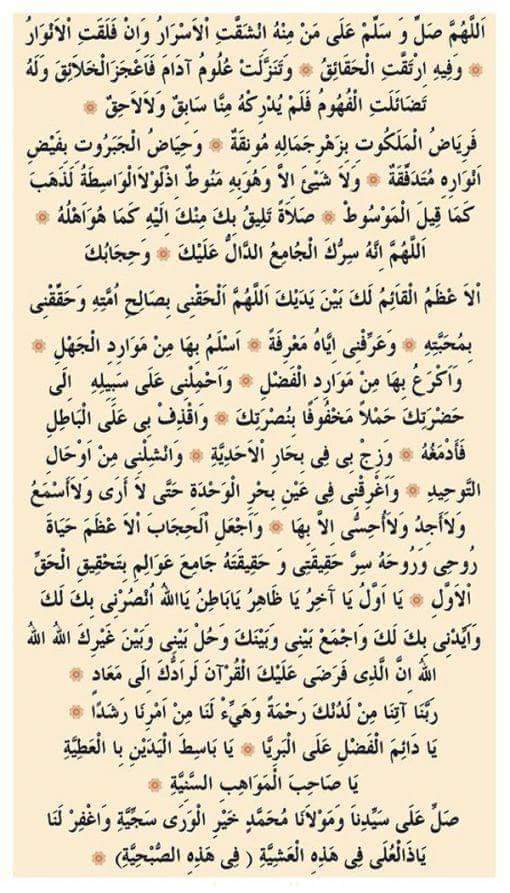 اَللّٰهُمَّ صَلِّ وَ سَلِّمْ عَلَى مَنْ مِنْهُ انْشَقَّتِ الْاَسْرَارُ وَانْ فَلَقَتِ الْاَنْوَارُ
❁ وَفِيهِ ارْتَقَتِ الْحَقَائِقُ ❁ وَتَنَزَّلَتْ عُلُومُ آدَامَ فَاَعْجَزَ الْخَلَائِقَ وَلَهُ
تَضَائَلَتِ الْفُهُومُ فَلَمْ يُدْرِكْهُ مِنَّا سَابِقٌ وَلَالَاحِقٌ ❁
فَرِيَاضُ الْمَلَكُوتِ بِزَهْرِجَمَالِهِ مُونِقَةٌ ❁ وَحِيَاضُ الْجَبَرُوتِ بِفَيْضِ
اَنْوَارِهِ مُتَدَفِّقَةٌ ❁ وَلَا شَيْئَ اِلاَّ وَهُوَبِهِ مَنُوطٌ اِذْلَوْلَاالْوَاسِطَةُ لَذَهَبَ
كَمَا قِيلَ الْمَوْسُوطُ ❁ صَلَاةً تَلِيقُ بِكَ مِنْكَ اِلَيْهِ كَمَا هُوَاَهْلُهُ ❁
اَللّٰهُمَّ اِنَّهُ سِرُّكَ الْجَامِعُ الدَّالُّ عَلَيْكَ ❁ وَحِجَابُكَ
اْلاَ عْظَمُ الْقَائِمُ لَكَ بَيْنَ يَدَيْكَ اَللّٰهُمَّ اَلْحَقْنِى بِصَالِحِ اُمَّتِهِ وَحَقِّقْنِى
بِمُحَبَّتِهِ ❁ وَعَرِّفْنِى اِيَّاهُ مَعْرِفَةً ❁ اَسْلَمُ بِهَا مِنْ مَوَارِدِ الْجَهْلِ ❁
وَاَكْرَعُ بِهَا مِنْ مَوَارِدِ الْفَضْلِ ❁ وَاَحْمِلْنِى عَلَى سَبِيلِهِ اِلَى
حَضْرَتِكَ حَمْلًا مَحْفُوفًا بِنُصْرَتِكَ ❁ وَاقْذِفْ بِى عَلَى الْبَاطِلِ
فَأَدْمَغُهُ ❁ وَزِجْ بِى فِى بِحَارِ الْاَحَدِيَّةِ ❁ وَانْشِلْنِى مِنْ اَوْحَالِ
التَّوْحِيدِ ❁ وَاَغْرِقْنِى فِى عَيْنِ بَحْرِ الْوَحْدَةِ حَتَّى لَا اَرَى وَلَااَسْمَعُ
وَلَااَجِدُ وَلَااُحِسُّى اِلاَّ بِهَا ❁ وَاجْعَلِ الْحِجَابَ اْلاَ عْظَمَ حَيَاةَ
رُوحِى وَرُوحَهُ سِرَّ حَقِيقَتِى وَ حَقِيقَتَهُ جَامِعَ عَوَالِمِ بِتَحْقِيقِ الْحَقِّ
الْاَوَّلِ ❁ يَا اَوَّلُ يَا آخِرُ يَا ظَاهِرُ يَابَاطِنُ يَااللهُ اُنْصُرْنِى بِكَ لَكَ
وَاَيِّدْنِى بِكَ لَكَ وَاجْمَعْ بَيْنِى وَبَيْنَكَ وَحُلْ بَيْنِى وَبَيْنَ غَيْرِكَ اللهُ اللهُ
اللهُ اِنَّ الَّذِى فَرَضَى عَلَيْكَ الْقُرْآنَ لَرَادُّكَ اِلَى مَعَادٍ ❁
رَبَّنَا آتِنَا مِنْ لَدُنْكَ رَحْمَةً وَهَيِّءْ لَنَا مِنْ اَمْرِنَا رَشَدًا ❁
يَا دَائِمَ الْفَضْلِ عَلَى الْبَرِيَّا ❁ يَا بَاسِطَ الْيَدَيْنِ بِا الْعَطِيَّةِ
يَا صَاحِبَ الْمَوَاهِبِ السَّنِيَّةِ ❁
صَلِّ عَلَى سَيِّدِنَا وَمَوْلَانَا مُحَمَّدٍ خَيْرِ الْوَرَى سَجِيَّةِ وَاغْفِرْ لَنَا
يَاذَالْعُلَى فِى هَذِهِ الْعَشِيَّةِ ( فِى هَذِهِ الصُّبْحِيَّةِ) ❁